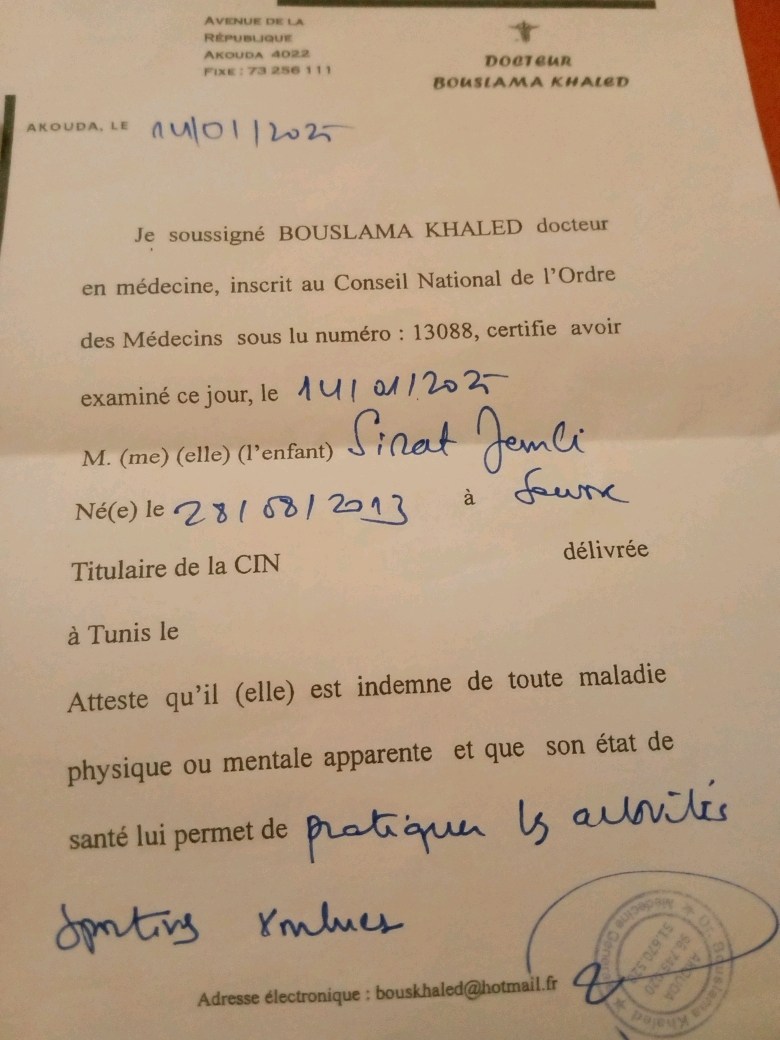 AVENUE DE LA
RÉPUBLIQUE
AKOUDA 4022
FIXE : 73 256 111
DOCTEUR
BOUSLAMA KHALED
AKOUDA, LE 14/01/2025
Je soussigné BOUSLAMA KHALED docteur
en médecine, inscrit au Conseil National de l'Ordre
des Médecins sous lu numéro : 13088, certifie avoir
examiné ce jour, le 14/01/2025
M. (me) (elle) (l'enfant) Sirat Jemli
Né(e) le 28/08/2013 à Sousse
Titulaire de la CIN délivrée
à Tunis le
Atteste qu'il (elle) est indemne de toute maladie
physique ou mentale apparente et que son état de
santé lui permet de pratiquer les activités
sportives voulues
Adresse électronique : bouskhaled@hotmail.fr
Dr. Bouslama Khaled
AKOUDA